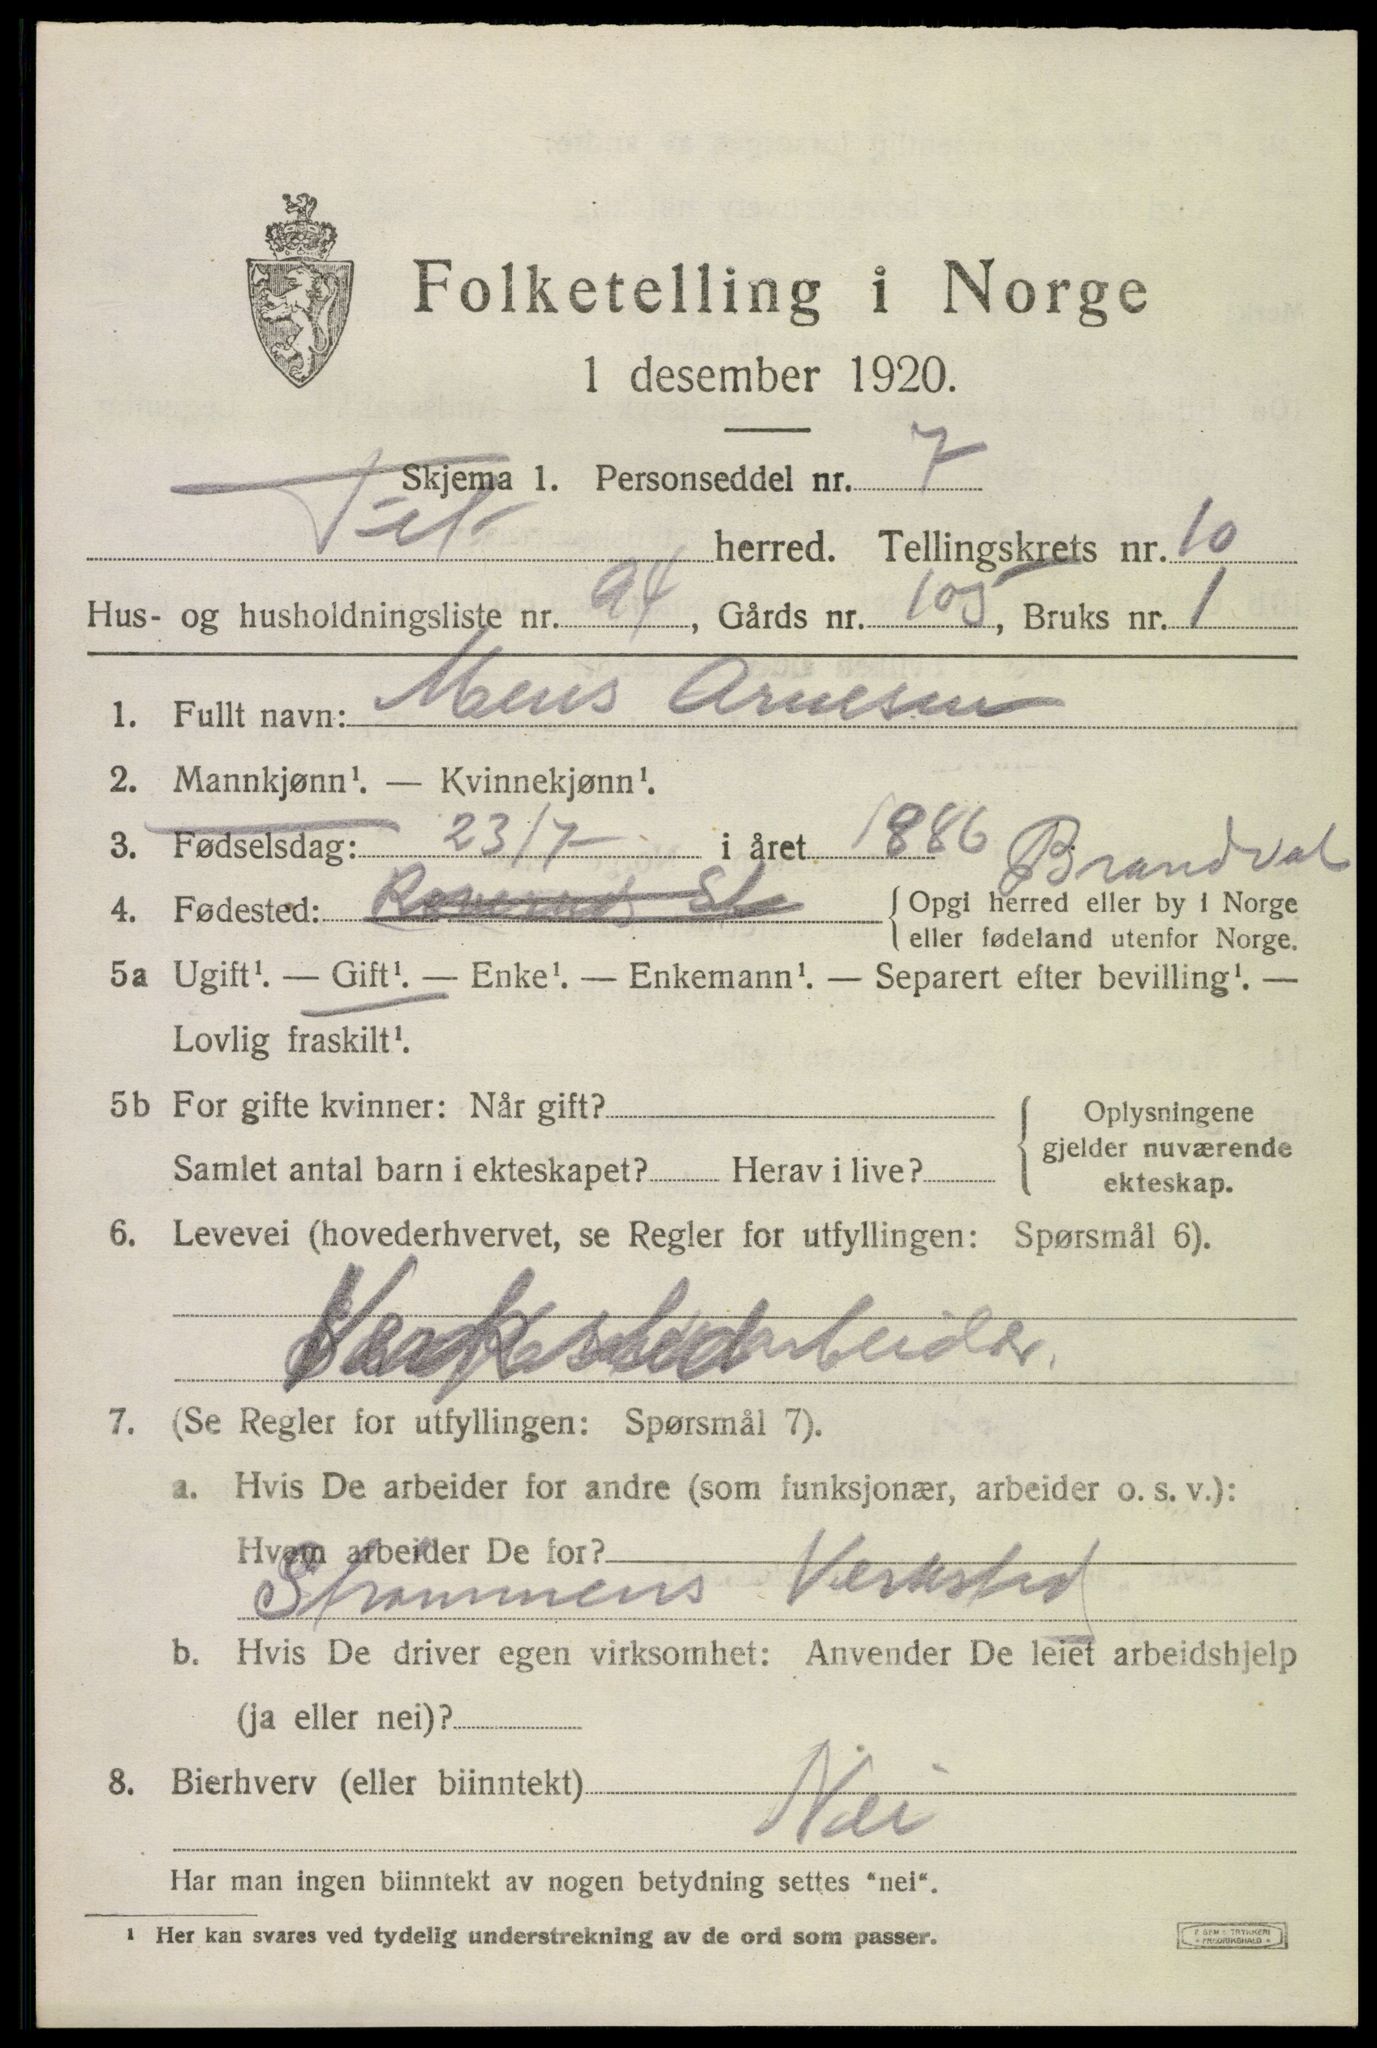 Folketelling i Norge
1 desember 1920.
Skjema 1. Personseddel nr. 7
Fet herred. Tellingskrets nr. 10
Hus- og husholdningsliste nr. 94, Gårds nr. 105, Bruks nr. 1
1. Fullt navn: Mens Arnesen
2. Mannkjønn¹. — Kvinnekjønn¹.
3. Fødselsdag: 23/7 i året 1886
Brandval
4. Fødested: { Opgi herred eller by i Norge
eller fødeland utenfor Norge.
5a Ugift¹. — Gift¹. — Enke¹. — Enkemann¹. — Separert efter bevilling¹. —
Lovlig fraskilt¹.
5b For gifte kvinner: Når gift?
Samlet antal barn i ekteskapet? Herav i live?
{ Oplysningene
gjelder nuværende
ekteskap.
6. Levevei (hovederhvervet, se Regler for utfyllingen: Spørsmål 6).
Verkstedarbeider.
7. (Se Regler for utfyllingen: Spørsmål 7).
a. Hvis De arbeider for andre (som funksjonær, arbeider o. s. v.):
Hvem arbeider De for?
Strømmens Værksted
b. Hvis De driver egen virksomhet: Anvender De leiet arbeidshjelp
(ja eller nei)?
8. Bierhverv (eller biinntekt) Nei
Har man ingen biinntekt av nogen betydning settes "nei".
¹ Her kan svares ved tydelig understrekning av de ord som passer.